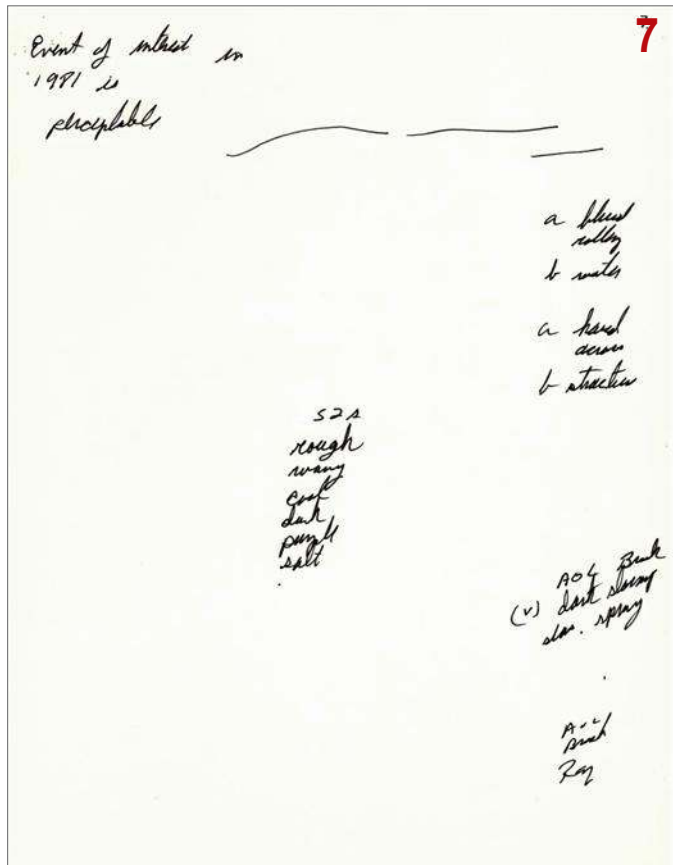 7
Event of interest in
1981 is
perceptable
a blued
rolling
b water
a hard
across
b structure
S2s
rough
wavy
cool
dark
purple
salt
AOL Break
(v) dark
spray
AOL
Break